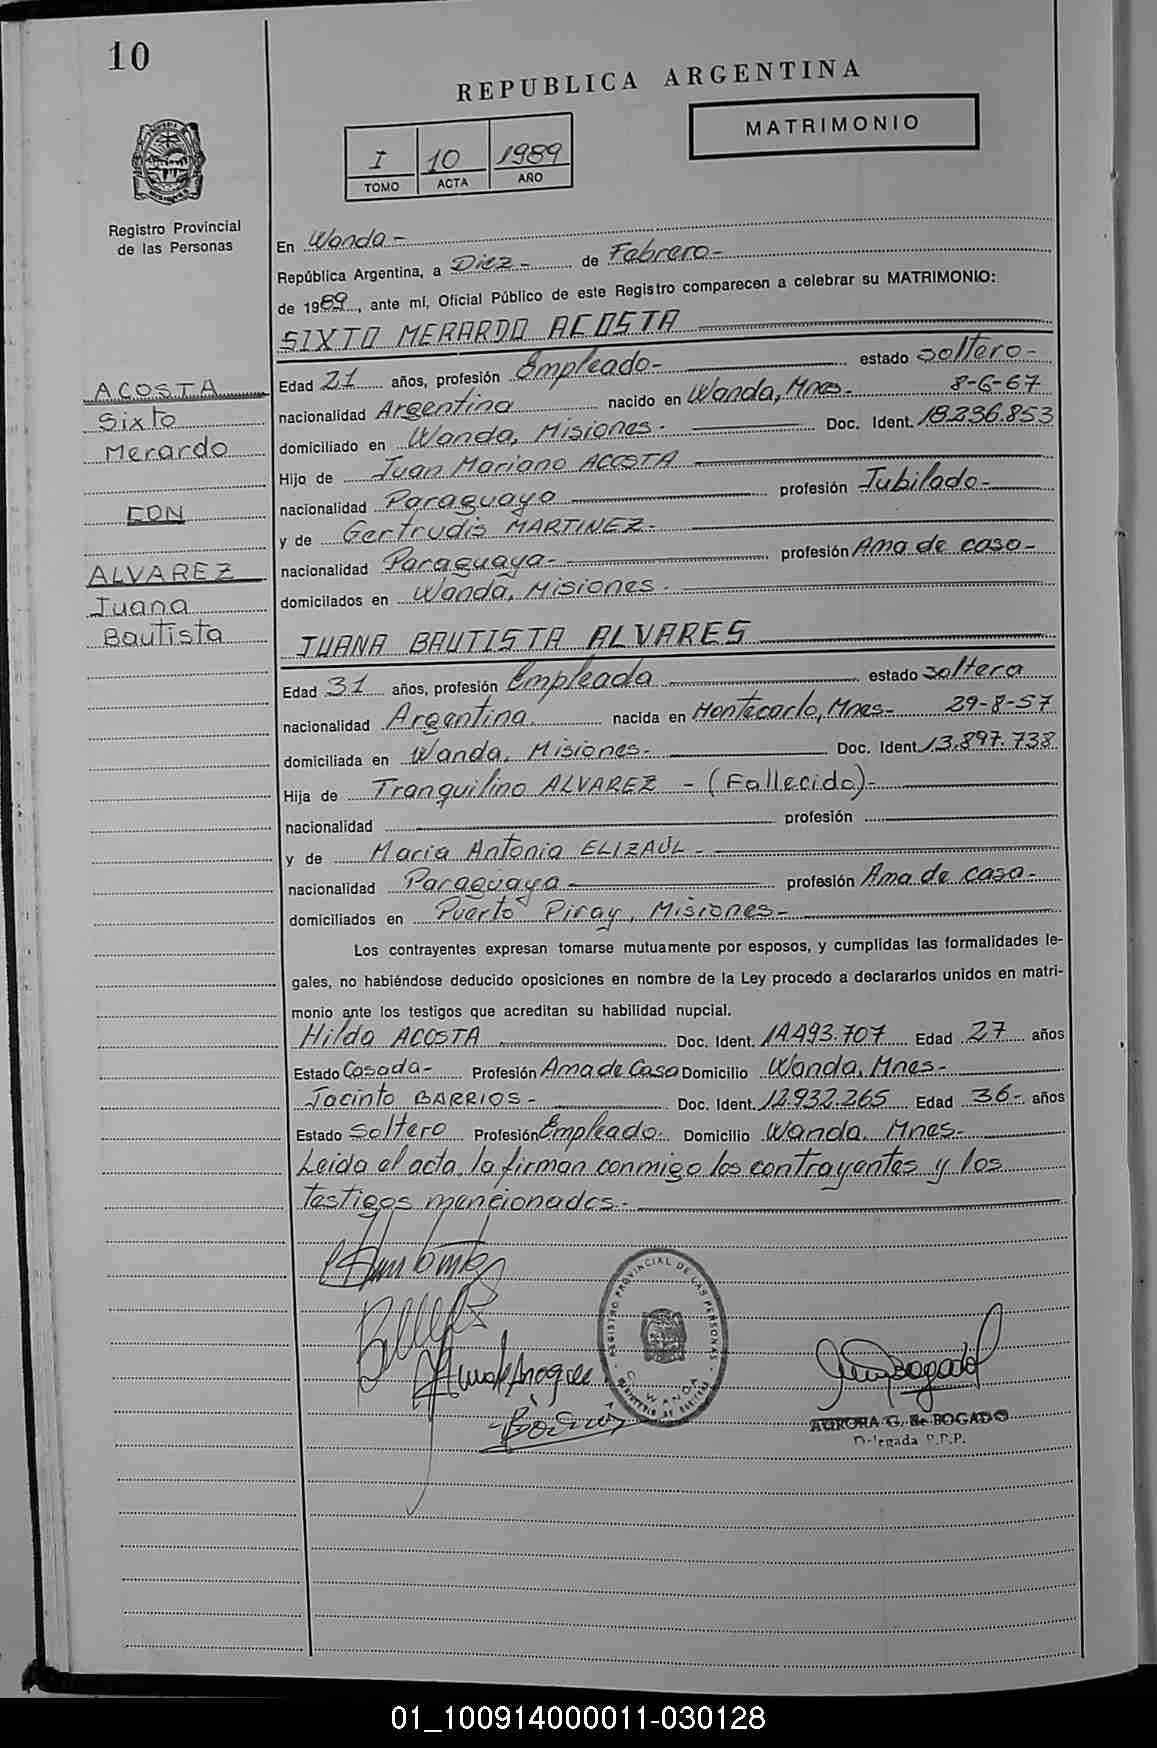 10
REPUBLICA ARGENTINA
MATRIMONIO
I 10 1989
TOMO ACTA AÑO
Registro Provincial
de las Personas
En Wanda -
República Argentina, a Diez - de Febrero -
de 1989, ante mí, Oficial Público de este Registro comparecen a celebrar su MATRIMONIO:
SIXTO MERARDO ACOSTA
ACOSTA
Sixto
Merardo
CON
ALVAREZ
Juana
Bautista
Edad 21 años, profesión Empleado - estado soltero -
nacionalidad Argentina nacido en Wanda, Mnes - 8-6-67
domiciliado en Wanda, Misiones - Doc. Ident. 18.236.853
Hijo de Juan Mariano ACOSTA
nacionalidad Paraguaya profesión Jubilado -
y de Gertrudis MARTINEZ -
nacionalidad Paraguaya - profesión Ama de casa -
domiciliados en Wanda, Misiones -
JUANA BAUTISTA ALVARES
Edad 31 años, profesión Empleada estado soltera
nacionalidad Argentina. nacida en Montecarlo, Mnes - 29-8-57
domiciliada en Wanda, Misiones - Doc. Ident. 13.897.738
Hija de Tranquilino ALVAREZ - (Fallecido) -
nacionalidad profesión
y de Maria Antonia ELIZAUL -
nacionalidad Paraguaya - profesión Ama de casa -
domiciliados en Puerto Piray, Misiones -
Los contrayentes expresan tomarse mutuamente por esposos, y cumplidas las formalidades le-
gales, no habiéndose deducido oposiciones en nombre de la Ley procedo a declararlos unidos en matri-
monio ante los testigos que acreditan su habilidad nupcial.
Hilda ACOSTA Doc. Ident. 14.493.707 Edad 27 años
Estado Casada - Profesión Ama de Casa Domicilio Wanda, Mnes -
Jacinto BARRIOS - Doc. Ident. 12.932.265 Edad 36 - años
Estado Soltero Profesión Empleado. Domicilio Wanda, Mnes -
Leida el acta, la firman conmigo los contrayentes y los
testigos mencionados -
REGISTRO PROVINCIAL DE LAS PERSONAS
WANDA
AURORA G. de BOGADO
Delegada R.P.P.
01_100914000011-030128